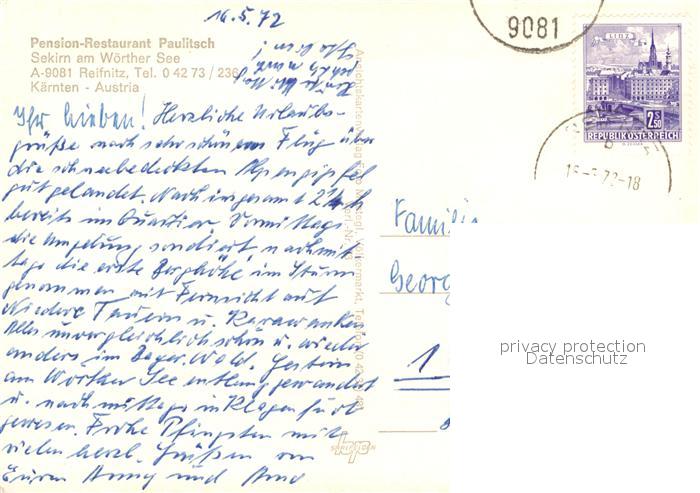 16.5.72
Pension-Restaurant Paulitsch
Sekirn am Wörther See
A-9081 Reifnitz, Tel. 0 42 73 / 236
Kärnten - Austria
Ihr Lieben! Herzliche Urlaubs-
grüße nach sehr schönem Flug über
die schneebedeckten Alpengipfel
gut gelandet. Nach insgesamt 2½ h
bereits im Quartier. Vormittags
die Umgebung sondiert, nachmit
tags die erste Berghöhe im Sturm
genommen mit Fernsicht auf
Niedere Tauern u. Karawanken
Alles unvergleichlich schön u. wieder
anders im Bayer. Wald. Gestern
am Wörther See entlang gewandert
u. nachmittags in Klagenfurt
gewesen. Frohe Pfingsten mit
vielen herzl. Grüßen von
Euren Anny und
Familie
Georg
1
9081
LINZ
2.50
REPUBLIK ÖSTERREICH
72-18
privacy protection
Datenschutz